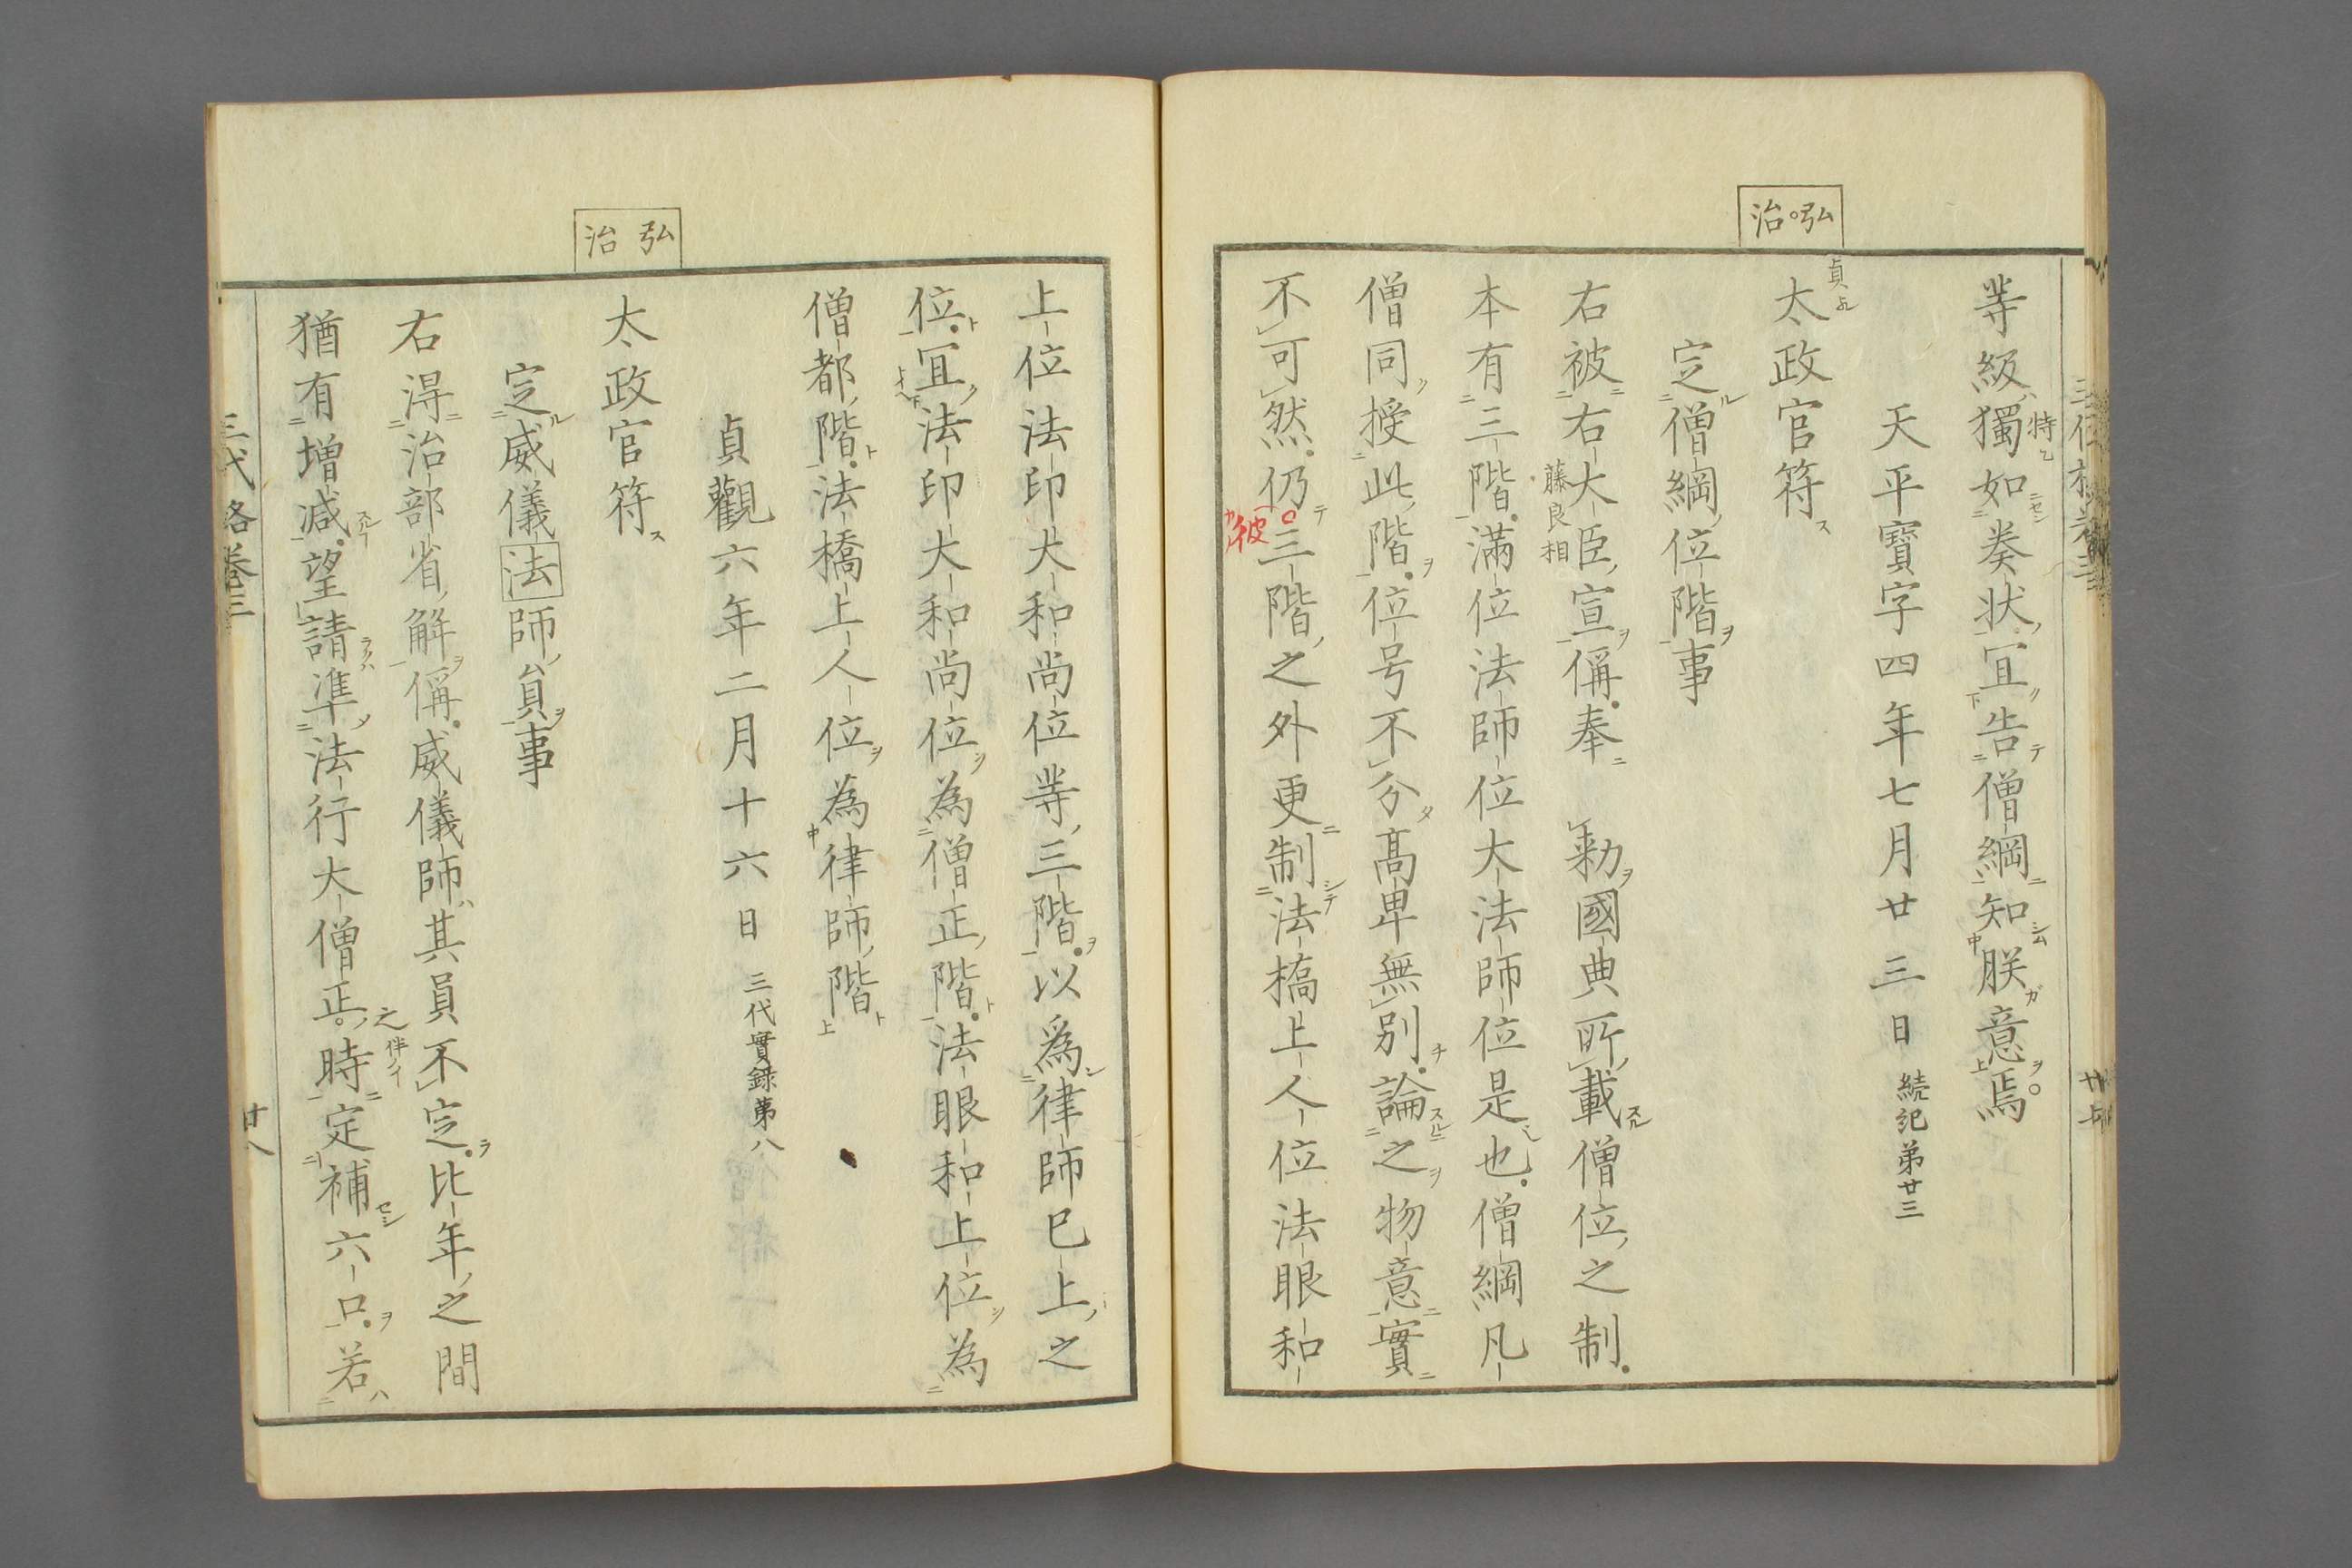 弘治
等級獨如奏状宜告僧綱知朕意焉
特乞
天平寳字四年七月廿三日 続紀第廿三
貞
太政官符
定僧綱位階事
右被右大臣宣偁奉 勅國典所載僧位之制
藤良相
本有三階滿位法師位大法師位是也僧綱凡
僧同授此階位号不分髙卑無別論之物意實
不可然仍三階之外更制法橋上人位法眼和
彼
弘治
上位法印大和尚位等三階以為律師已上之
位宜法印大和尚位為僧正階法眼和上位為
僧都階法橋上人位為律師階
貞觀六年二月十六日 三代實録第八
太政官符
定威儀法師員事
右得治部省解偁威儀師其員不定比年之間
猶有増減望請準法行大僧正時定補六口若
三代格巻三
廿八